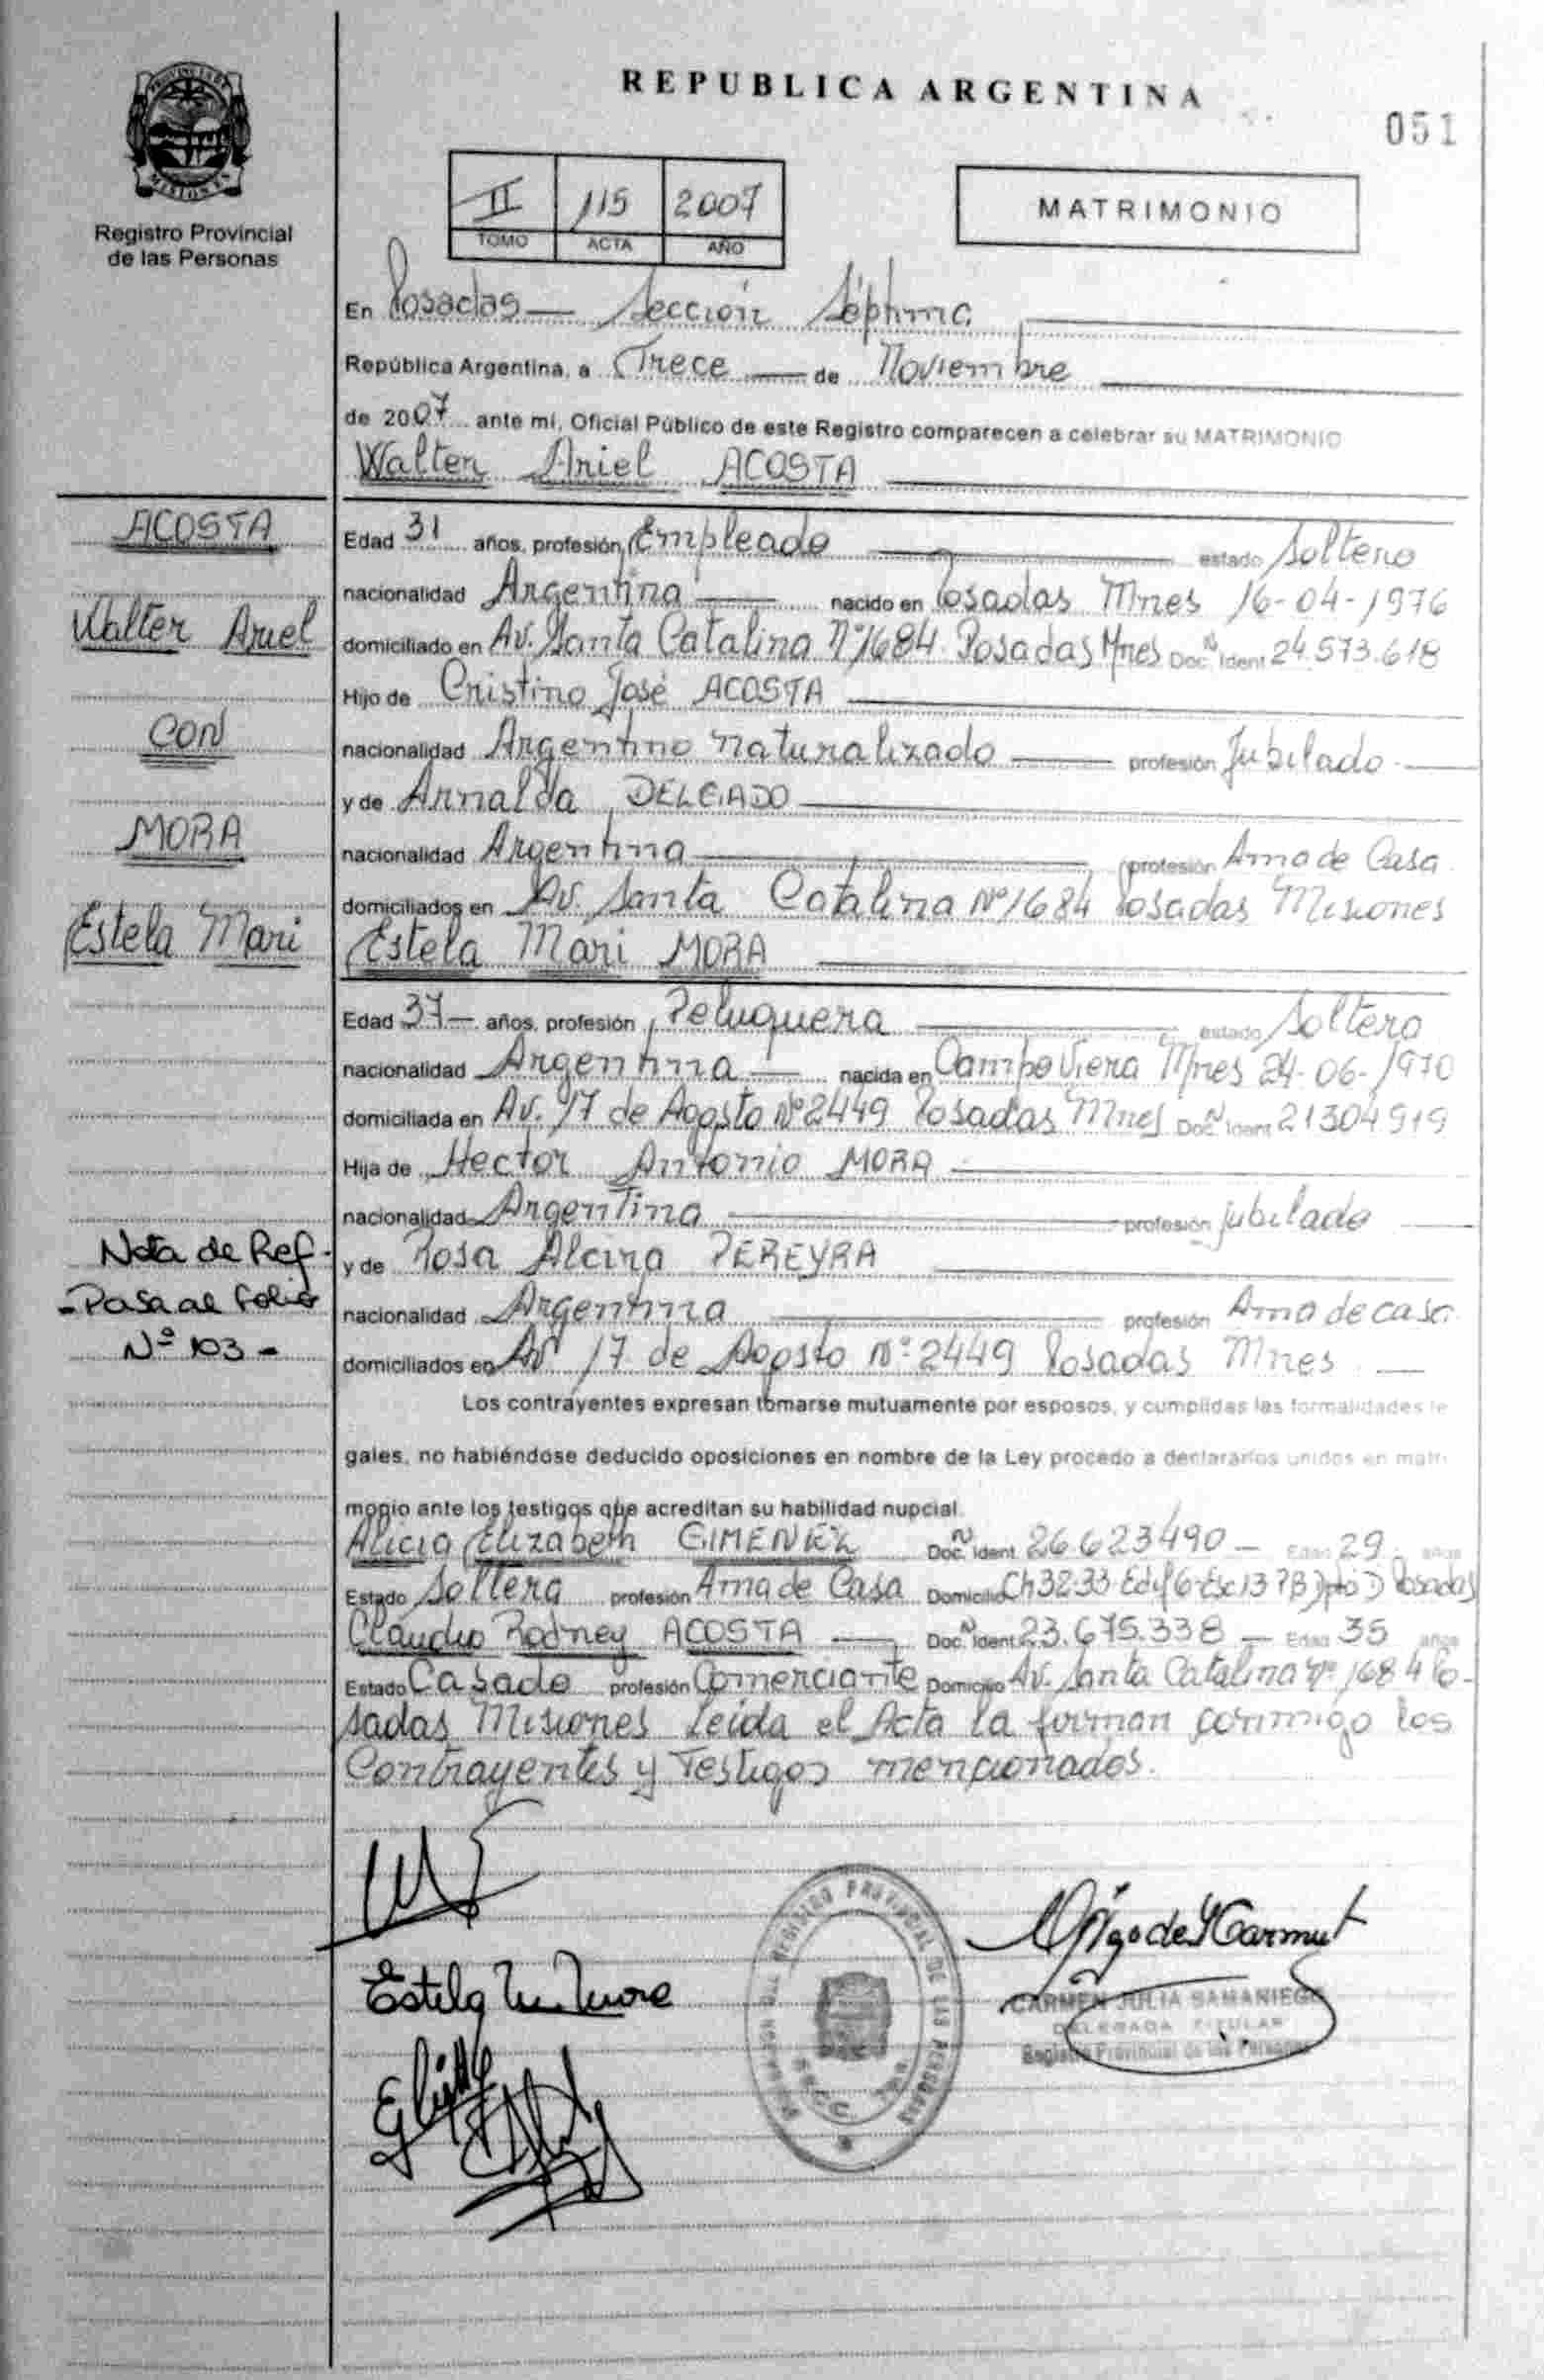 REPUBLICA ARGENTINA
051
PROVINCIA DE MISIONES
Registro Provincial
de las Personas
II 115 2007
TOMO ACTA AÑO
MATRIMONIO
En Posadas — Sección Séptima
República Argentina, a Trece — de Noviembre
de 2007 ante mi, Oficial Público de este Registro comparecen a celebrar su MATRIMONIO
Walter Ariel ACOSTA
ACOSTA
Walter Ariel
CON
MORA
Estela Mari
Edad 31 años, profesión Empleado estado Soltero
nacionalidad Argentina — nacido en Posadas Mnes 16-04-1976
domiciliado en Av. Santa Catalina Nº1684 Posadas Mnes Doc. Nº Ident 24.573.618
Hijo de Cristino José ACOSTA
nacionalidad Argentino naturalizado — profesión Jubilado
y de Arnalda DELGADO
nacionalidad Argentina profesión Ama de Casa
domiciliados en Av. Santa Catalina Nº1684 Posadas Misiones
Estela Mari MORA
Edad 37 — años, profesión Peluquera estado Soltera
nacionalidad Argentina — nacida en Campo Viera Mnes 24-06-1970
domiciliada en Av. 17 de Agosto Nº2449 Posadas Mnes Doc. Nº Ident 21304919
Hija de Hector Antonio MORA
nacionalidad Argentina profesión jubilado
y de Rosa Alcira PEREYRA
nacionalidad Argentina profesión Ama de casa
domiciliados en Av 17 de Agosto Nº 2449 Posadas Mnes —
Nota de Ref-
-Pasa al folio
Nº 103-
Los contrayentes expresan tomarse mutuamente por esposos, y cumplidas las formalidades le
gales, no habiéndose deducido oposiciones en nombre de la Ley procedo a declararlos unidos en matri
monio ante los testigos que acreditan su habilidad nupcial.
Alicia Elizabeth GIMENEZ Doc. Nº Ident 26623490 — Edad 29 años
Estado Soltera profesión Ama de Casa Domicilio Ch 32-33 Edif 6 Esc 13 Dpto D Posadas
Claudio Rodney ACOSTA — Doc. Nº Ident 23.675.338 — Edad 35 años
Estado Casado profesión Comerciante Domicilio Av. Santa Catalina Nº 1684 Po-
sadas Misiones Leída el Acta la firman conmigo los
Contrayentes y Testigos mencionados.
REGISTRO PROVINCIAL DE LAS PERSONAS
CARMEN JULIA SAMANIEGO
DELEGADA TITULAR
Registro Provincial de las Personas